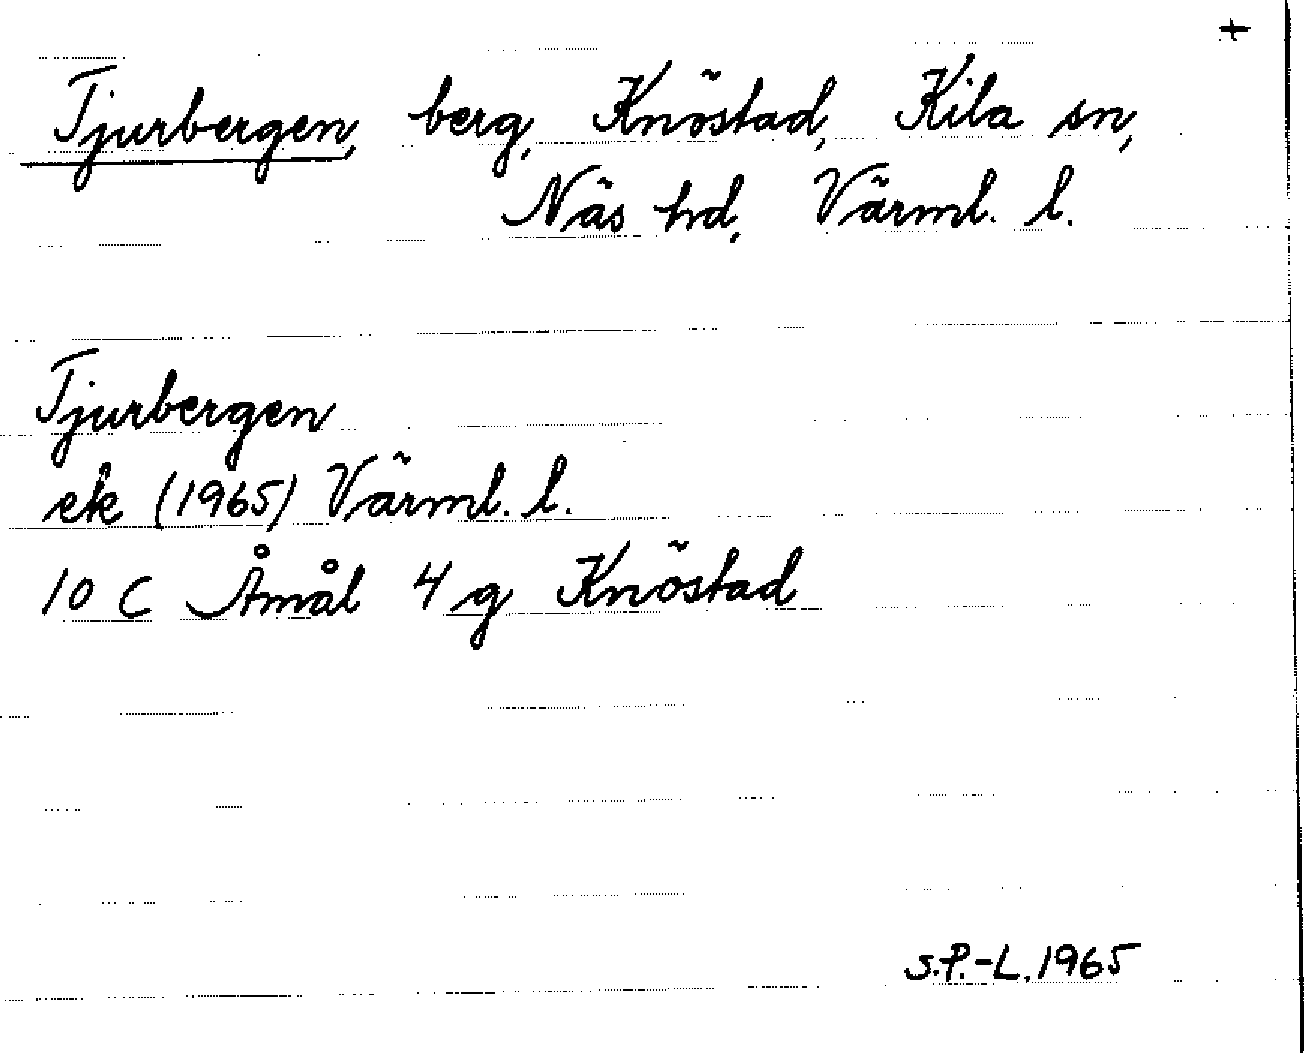 +
Tjurbergen, berg, Knöstad, Kila sn,
Näs hd, Värml. l.
Tjurbergen
ek (1965) Värml. l.
10 C Åmål 4 g Knöstad
S.P.-L. 1965